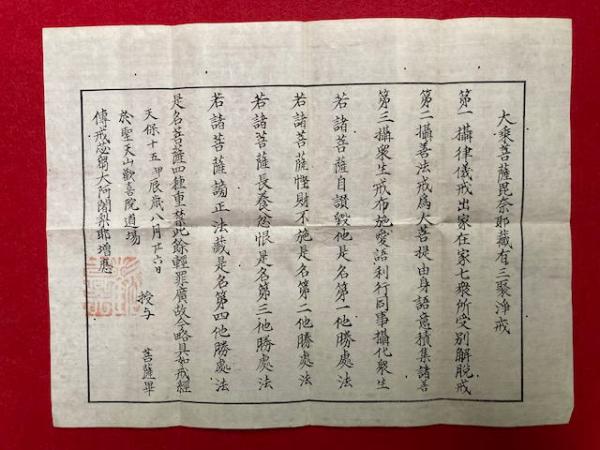 大乘菩薩毘奈耶藏有三聚淨戒
第一攝律儀戒出家在家七衆所受別解脫戒
第二攝善法戒爲大菩提由身語意積集諸善
第三攝衆生戒布施愛語利行同事攝化衆生
若諸菩薩自讃毀他是名第一他勝處法
若諸菩薩慳財不施是名第二他勝處法
若諸菩薩長養忿恨是名第三他勝處法
若諸菩薩謗正法藏是名第四他勝處法
是名菩薩四種重禁此餘輕罪廣故今略具如戒經
天保十五甲辰歳八月廿六日
於聖天山歡喜院道場
授与
菩薩畢
傳戒苾芻大阿闍梨耶增應